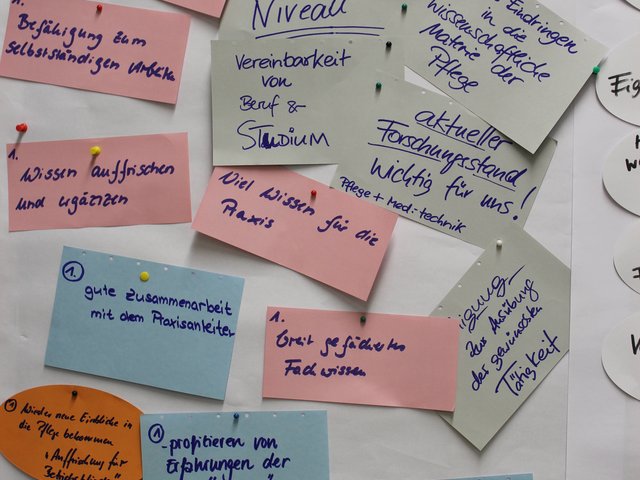 1.
Befähigung zum
selbstständigen Arbeiten
Niveau
Eindringen
in die
wissenschaftliche
Materie der
Pflege
Vereinbarkeit
von
Beruf &
STUDIUM
aktueller
Forschungsstand
wichtig für uns!
Pflege + Medi: technik
1.
Wissen auffrischen
und ergäzizen
Viel Wissen für die
Praxis
1.
gute Zusammenarbeit
mit dem Praxisanleiter
1.
breit gefächertes
Fachwissen
igung
zur Ausübung
der gewünschten
Tätigkeit
1
Wieder neue Einblicke in
die Pflege bekommen
"Auffrischung für
1
-profitieren von
Erfahrungen der
Eig